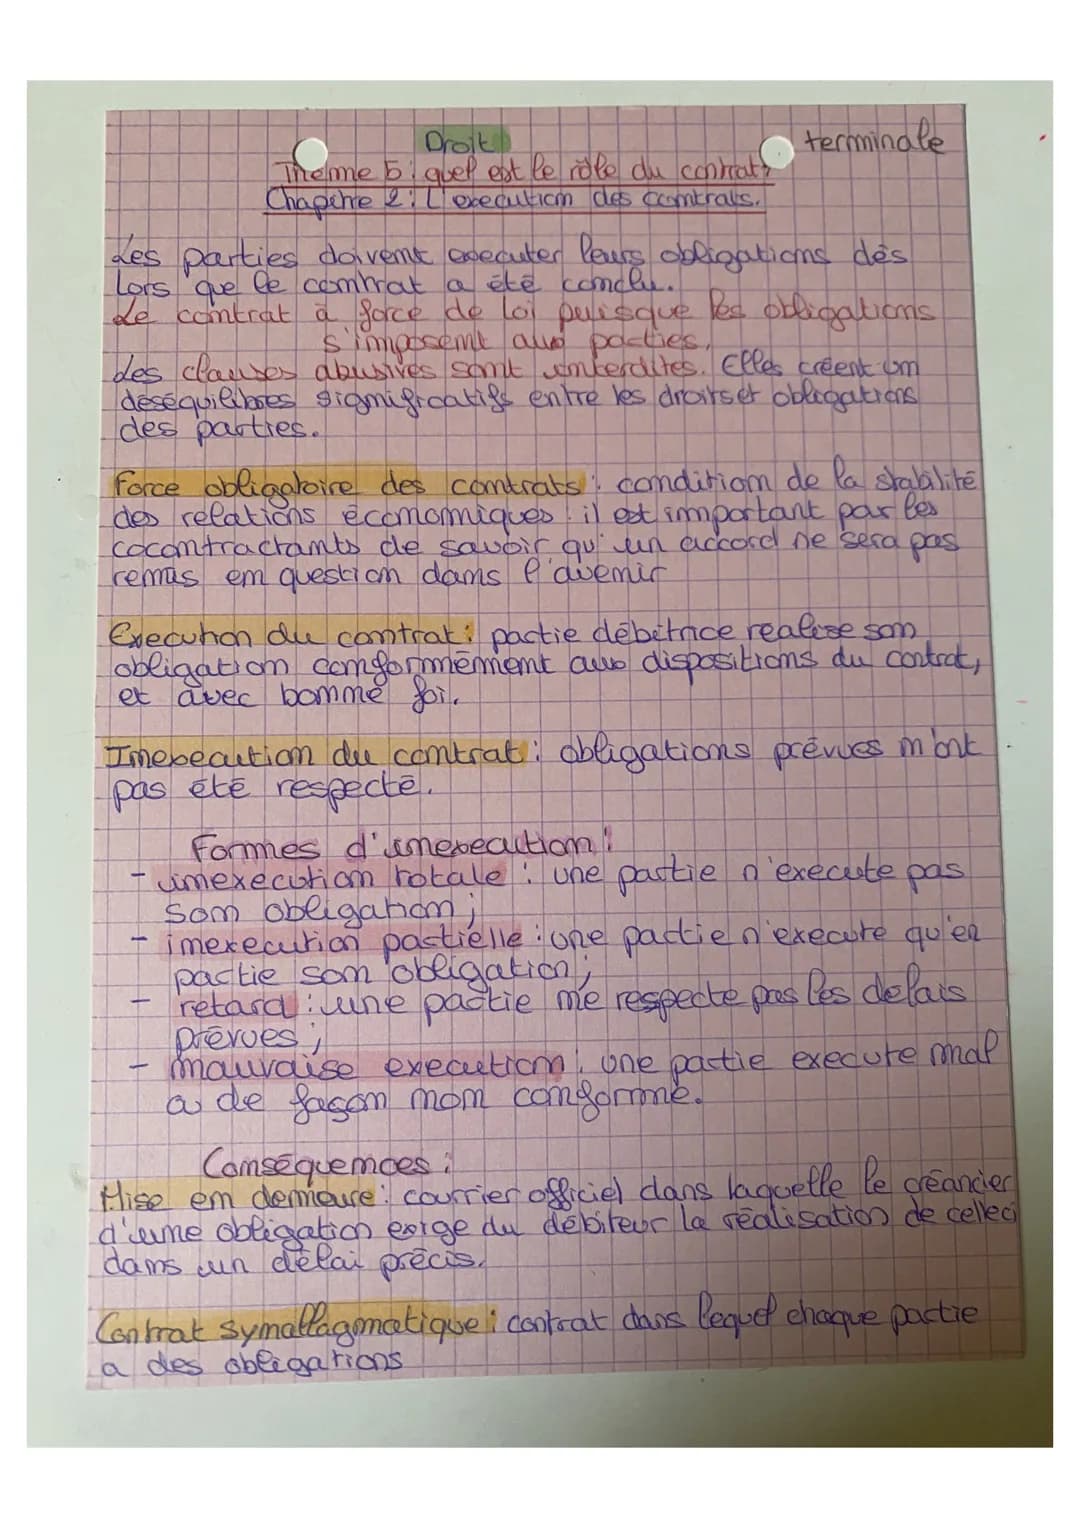 Droit
terminale
Thème 5 : quel est le rôle du contrat ?
Chapitre 2 : L'execution des contrats.
Les parties doivent executer leurs obligations dès
lors que le contrat a été conclu.
Le contrat à force de loi puisque les obligations
s'imposent aux parties.
Les clauses abusives sont interdites. Elles créent un
deséquilibres significatifs entre les droits et obligations
des parties.
Force obligatoire des contrats : condition de la stabilité
des relations économiques : il est important par les
cocontractants de savoir qu'un accord ne sera pas
remis en question dans l'avenir
Execution du contrat : partie débitrice realise son
obligation conformément aux dispositions du contrat,
et avec bonne foi.
Inexecution du contrat : obligations prévues n'ont
pas été respecté.
Formes d'inexecution :
- inexecution totale : une partie n'execute pas
son obligation ;
- inexecution partielle : une partie n'execute qu'en
partie son obligation ;
- retard : une partie ne respecte pas les delais
prévues ;
- mauvaise execution : une partie execute mal
ou de façon non conforme.
Conséquences :
Mise en demeure : courrier officiel dans laquelle le créancier
d'une obligation exige du débiteur la réalisation de celleci
dans un délai précis.
Contrat symallagmatique : contrat dans lequel chaque partie
a des obligations